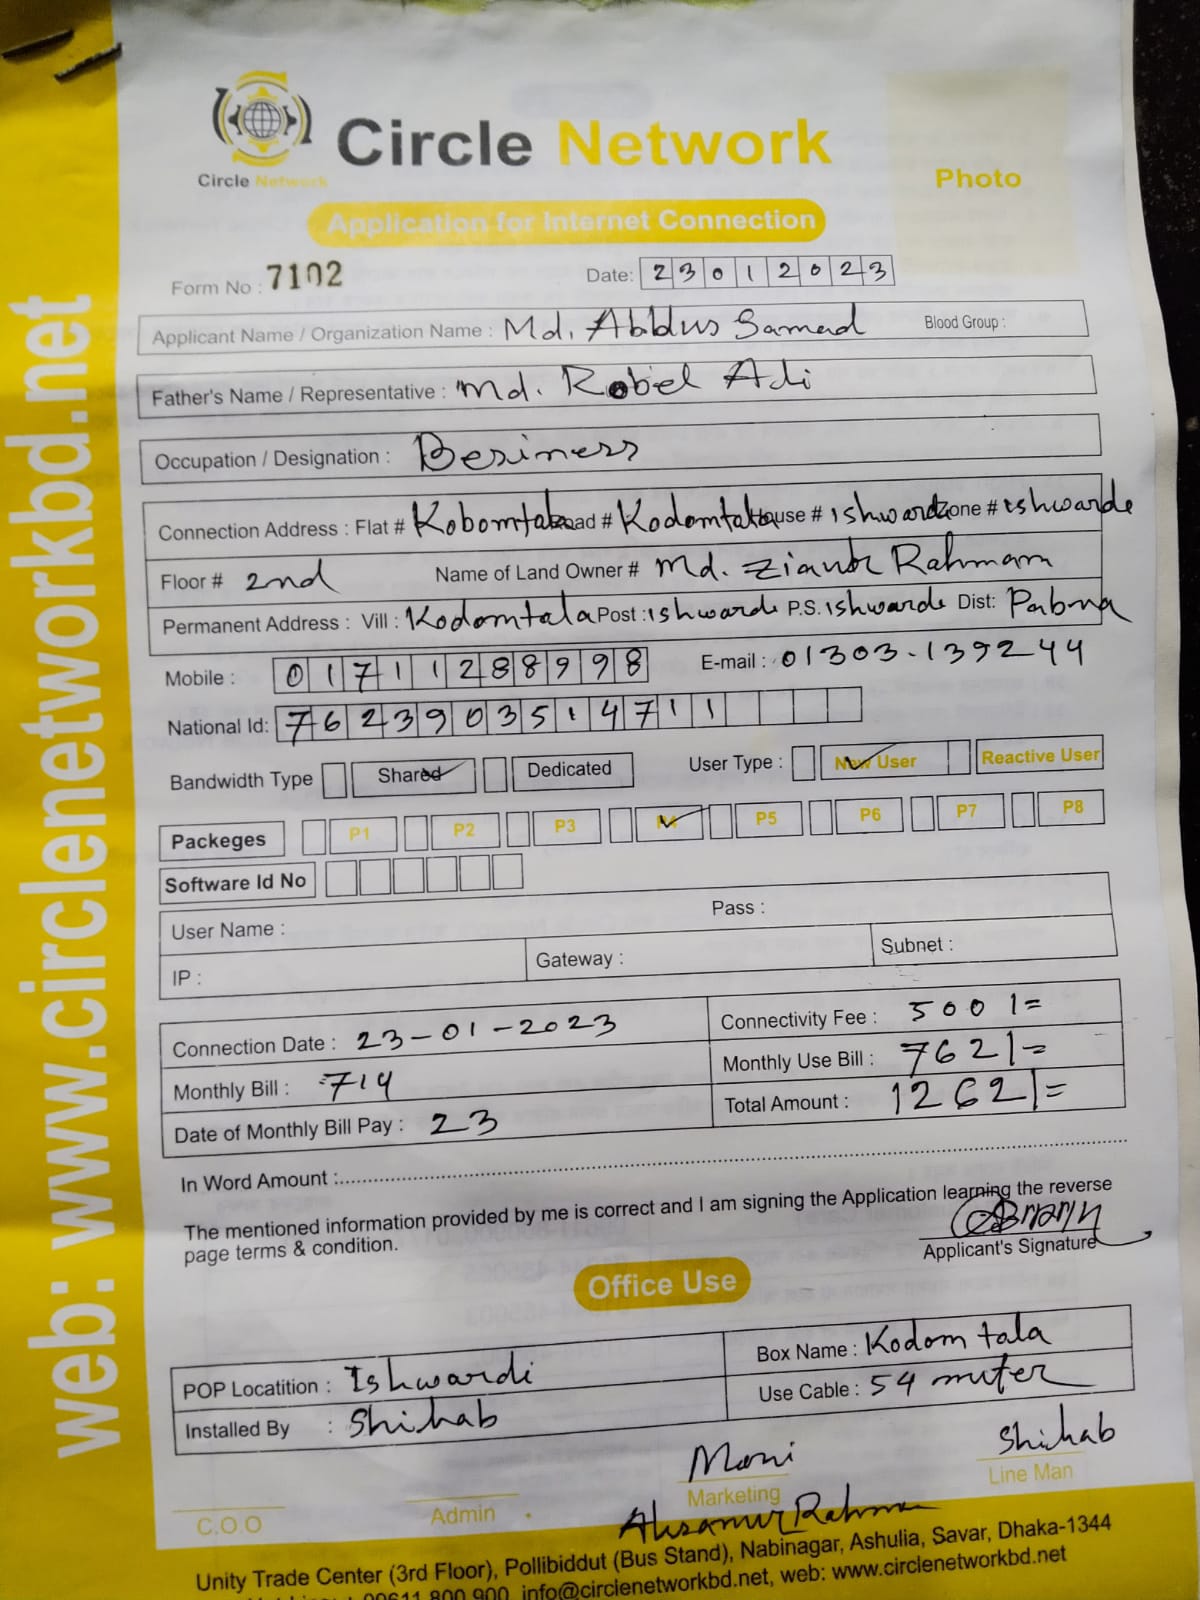 web: www.circlenetworkbd.net
Circle Network
Circle Network
Photo
Application for Internet Connection
Form No : 7102
Date: 23012023
Applicant Name / Organization Name : Md. Abbdus Samad Blood Group :
Father's Name / Representative : Md. Robel Adi
Occupation / Designation : Besiness
Connection Address : Flat # Kobomtala Road # Kodomtala House # ishwarde Zone # ishwarde
Floor # 2nd Name of Land Owner # Md. Ziaur Rahmam
Permanent Address : Vill : Kodomtala Post : ishwarde P.S. ishwarde Dist: Pabna
Mobile : 01711288998 E-mail : 01303-139244
National Id: 7623903514711
Bandwidth Type Shared Dedicated User Type : New User Reactive User
Packeges P1 P2 P3 P4 P5 P6 P7 P8
Software Id No
User Name : Pass :
IP : Gateway : Subnet :
Connection Date : 23-01-2023 Connectivity Fee : 500/=
Monthly Bill : 714 Monthly Use Bill : 762/=
Date of Monthly Bill Pay : 23 Total Amount : 1262/=
In Word Amount :
The mentioned information provided by me is correct and I am signing the Application learning the reverse
page terms & condition.
Applicant's Signature
Office Use
POP Locatition : Ishwardi Box Name : Kodomtala
Installed By : Shihab Use Cable : 54 miter
Moni Shihab
C.O.O Admin Marketing Line Man
Ahsanur Rahman
Unity Trade Center (3rd Floor), Pollibiddut (Bus Stand), Nabinagar, Ashulia, Savar, Dhaka-1344
09611 800 900, info@circlenetworkbd.net, web: www.circlenetworkbd.net